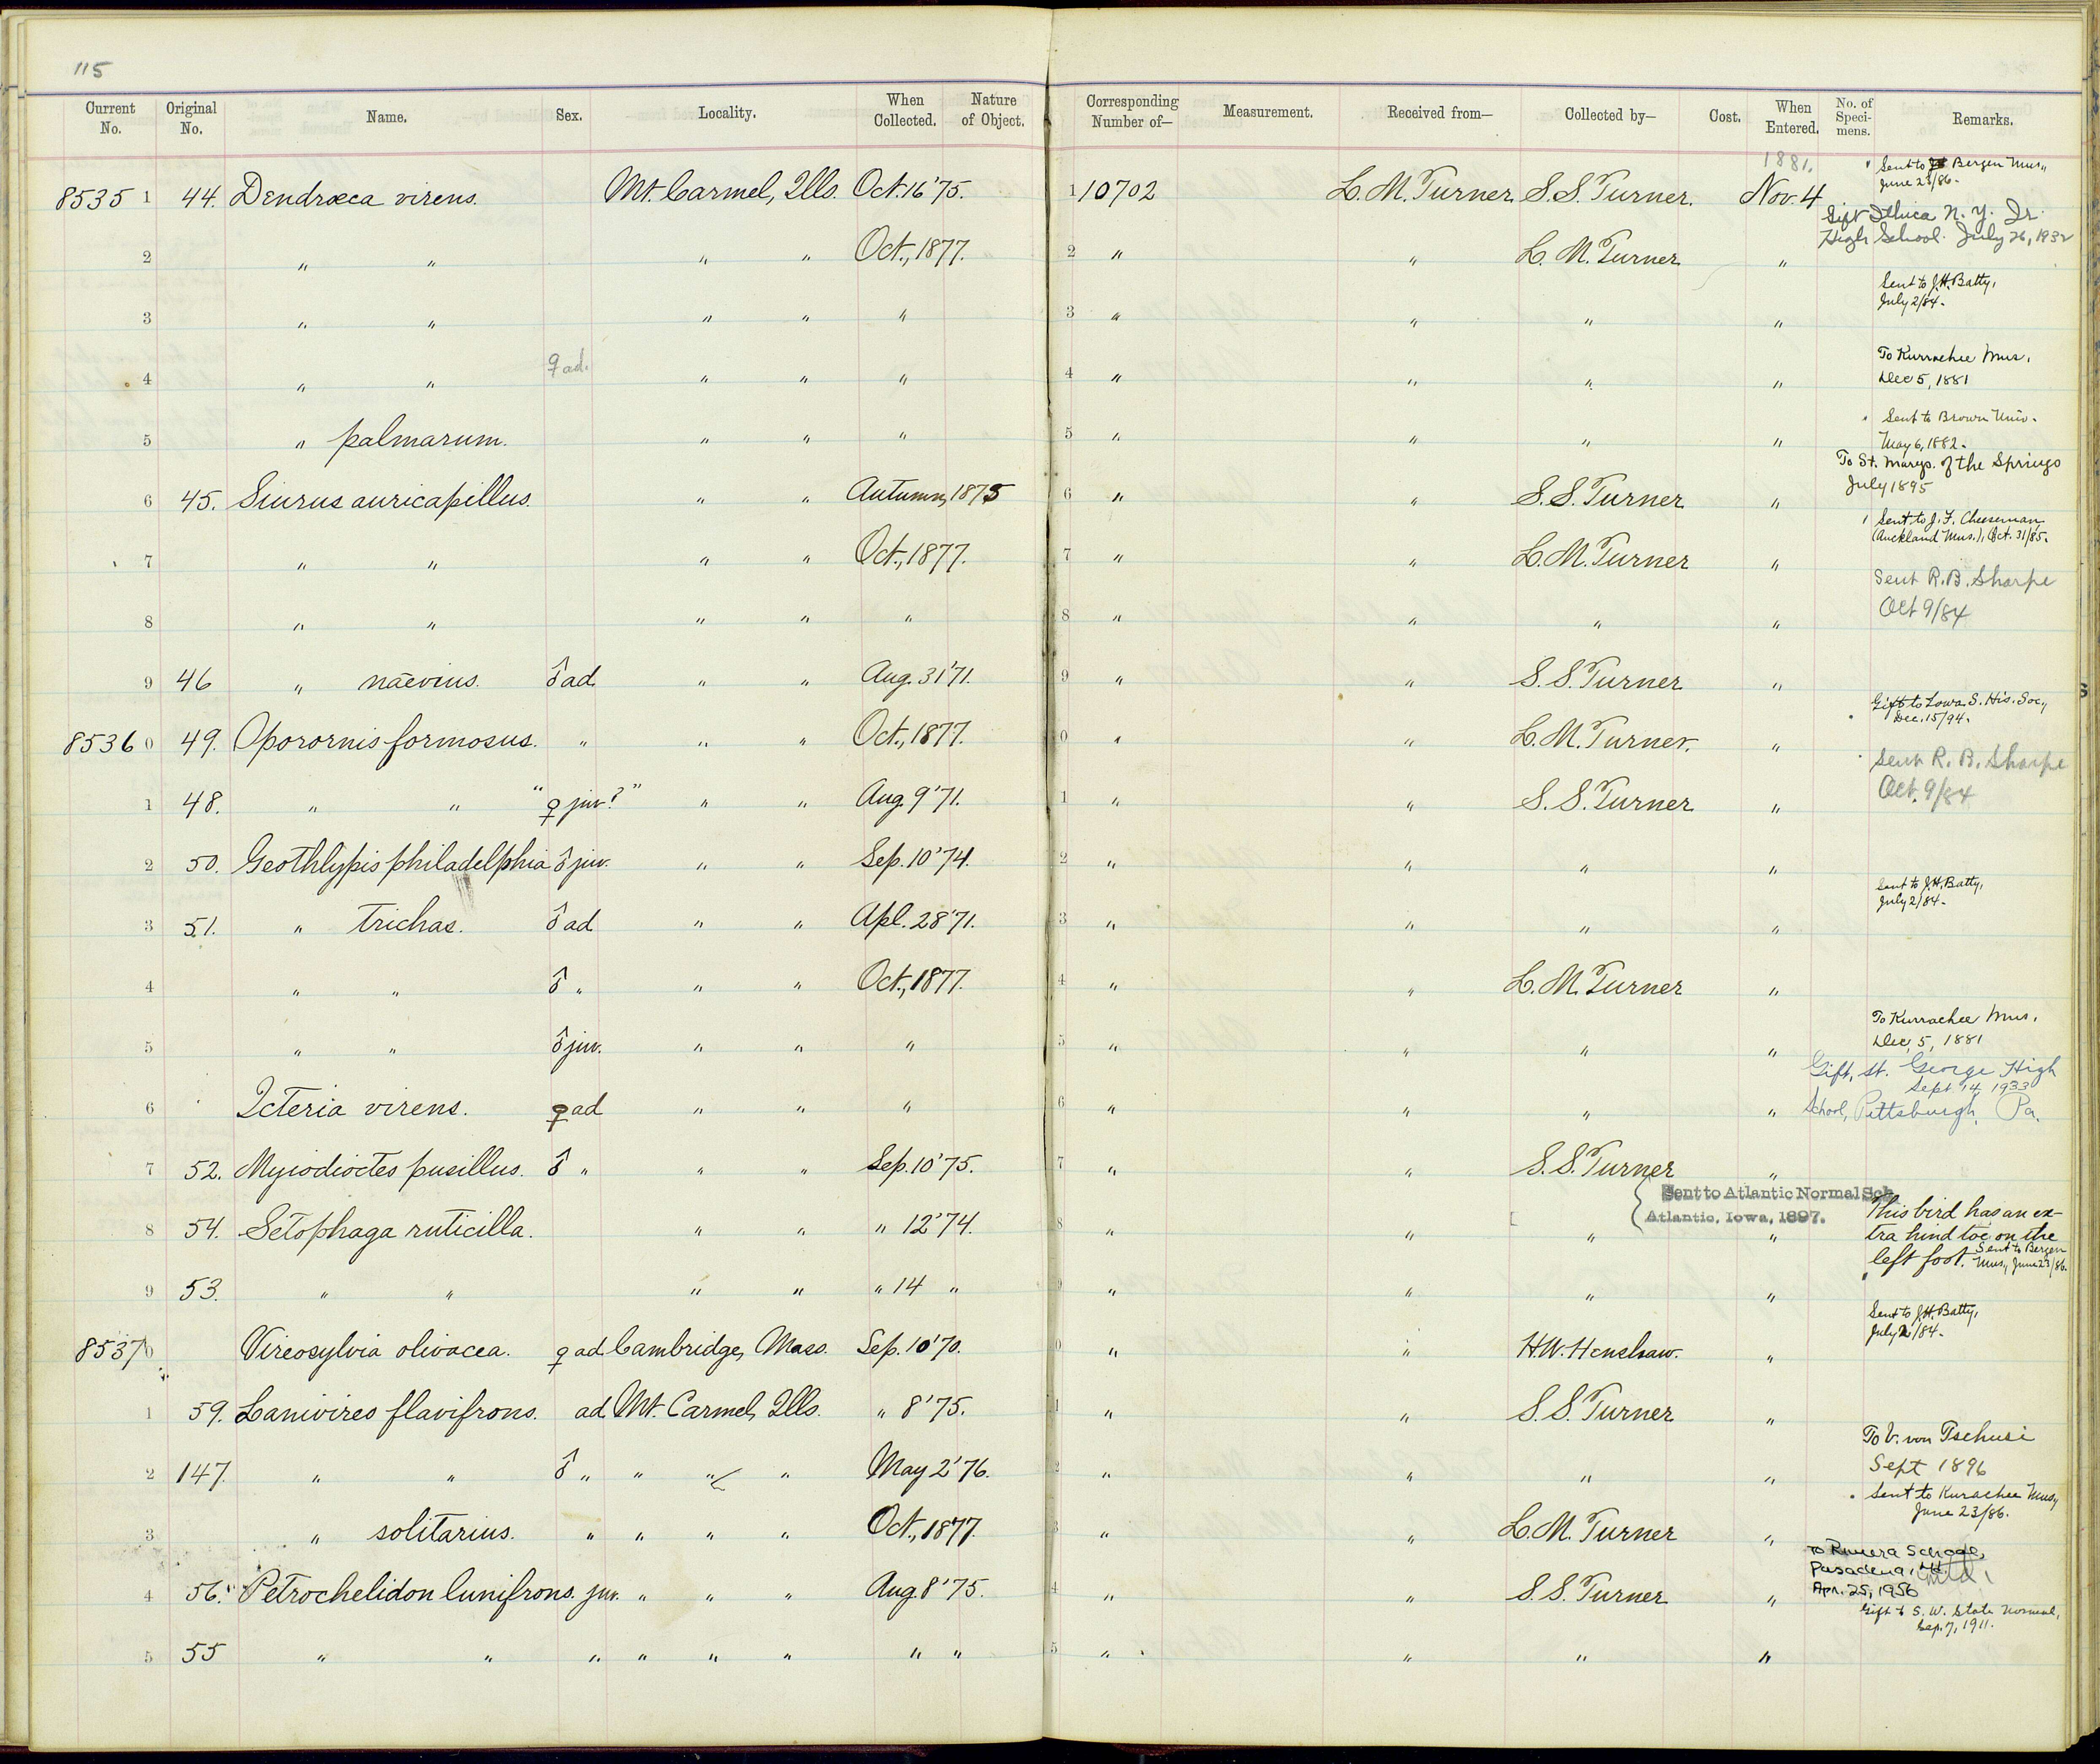 115
Current No. Original No. Name. Sex. Locality. When Collected. Nature of Object. Corresponding Number of— Measurement. Received from— Collected by— Cost. When Entered. No. of Specimens. Remarks.
1881.
Sent to Bergen Mus.,
June 23/86.
8535 1 44. Dendrœca virens. Mt. Carmel, Ills. Oct. 16 '75. 1 10702 L. M. Turner S. S. Turner. Nov. 4
Gift Ithica N. Y. Jr.
High School. July 26, 1932
2 " " " " Oct., 1877. 2 " " L. M. Turner "
Sent to J. H. Batty,
July 2/84.
3 " " " " " 3 " " " "
To Kurrachee Mus.
Dec 5, 1881
4 " " ♀ ad. " " " 4 " " " "
Sent to Brown Univ.
May 6, 1882.
5 " palmarum. " " " 5 " " " "
To St. Marys. of the Springs
July 1895
6 45. Siurus auricapillus. " " Autumn, 1875 6 " " S. S. Turner "
Sent to J. F. Cheeseman,
(Auckland Mus.), Oct. 31/85.
7 " " " " Oct., 1877. 7 " " L. M. Turner "
Sent R. B. Sharpe
Oct 9/84
8 " " " " " 8 " " " "
9 46 " naevius. ♂ ad. " " Aug. 31 '71. 9 " " S. S. Turner "
Gift to Iowa S. His. Soc.,
Dec. 15/94.
8536 0 49. Oporornis formosus. " " " Oct., 1877. 0 " " L. M. Turner. "
Sent R. B. Sharpe
Oct. 9/84
1 48. " " "♀ juv.?" " " Aug. 9 '71. 1 " " S. S. Turner "
2 50. Geothlypis philadelphia ♂ juv. " " Sep. 10 '74. 2 " " " "
Sent to J. H. Batty,
July 2/84.
3 51. " trichas. ♂ ad " " Apl. 28 '71. 3 " " " "
4 " " ♂ " " " Oct., 1877. 4 " " L. M. Turner "
To Kurrachee Mus.
Dec, 5, 1881
5 " " ♂ juv. " " " 5 " " " "
Gift, St. George High
Sept 14, 1933
School, Pittsburgh, Pa.
6 Icteria virens. ♀ ad " " " 6 " " " "
7 52. Myiodioctes pusillus. ♂ " " " Sep. 10 '75. 7 " " S. S. Turner "
Sent to Atlantic Normal Sch.
Atlantic, Iowa, 1897.
8 54. Setophaga ruticilla. " " " 12 '74. 8 " " " "
This bird has an ex-
tra hind toe on the
left foot. Sent to Bergen
Mus., June 23/86.
9 53. " " " " " 14 " 9 " " " "
Sent to J. H. Batty,
July 2/84.
8537 0 Vireosylvia olivacea. ♀ ad. Cambridge, Mass. Sep. 10 '70. 0 " " H. W. Henshaw. "
1 59. Lanivireo flavifrons. ad. Mt. Carmel, Ills. " 8 '75. 1 " " S. S. Turner "
To V. von Tschusi
Sept 1896
2 147. " " ♂ " " " " May 2 '76. 2 " " " "
Sent to Kurachee Mus,
June 23/86.
3 " solitarius. " " " " Oct., 1877 3 " " L. M. Turner "
To Riviera School,
Pasadena, Md.
Apr. 25, 1956
4 56. Petrochelidon lunifrons. juv. " " " Aug. 8 '75. 4 " " S. S. Turner "
Gift to S. W. State Normal,
Sep. 7, 1911.
5 55 " " " " " " " " 5 " " " "